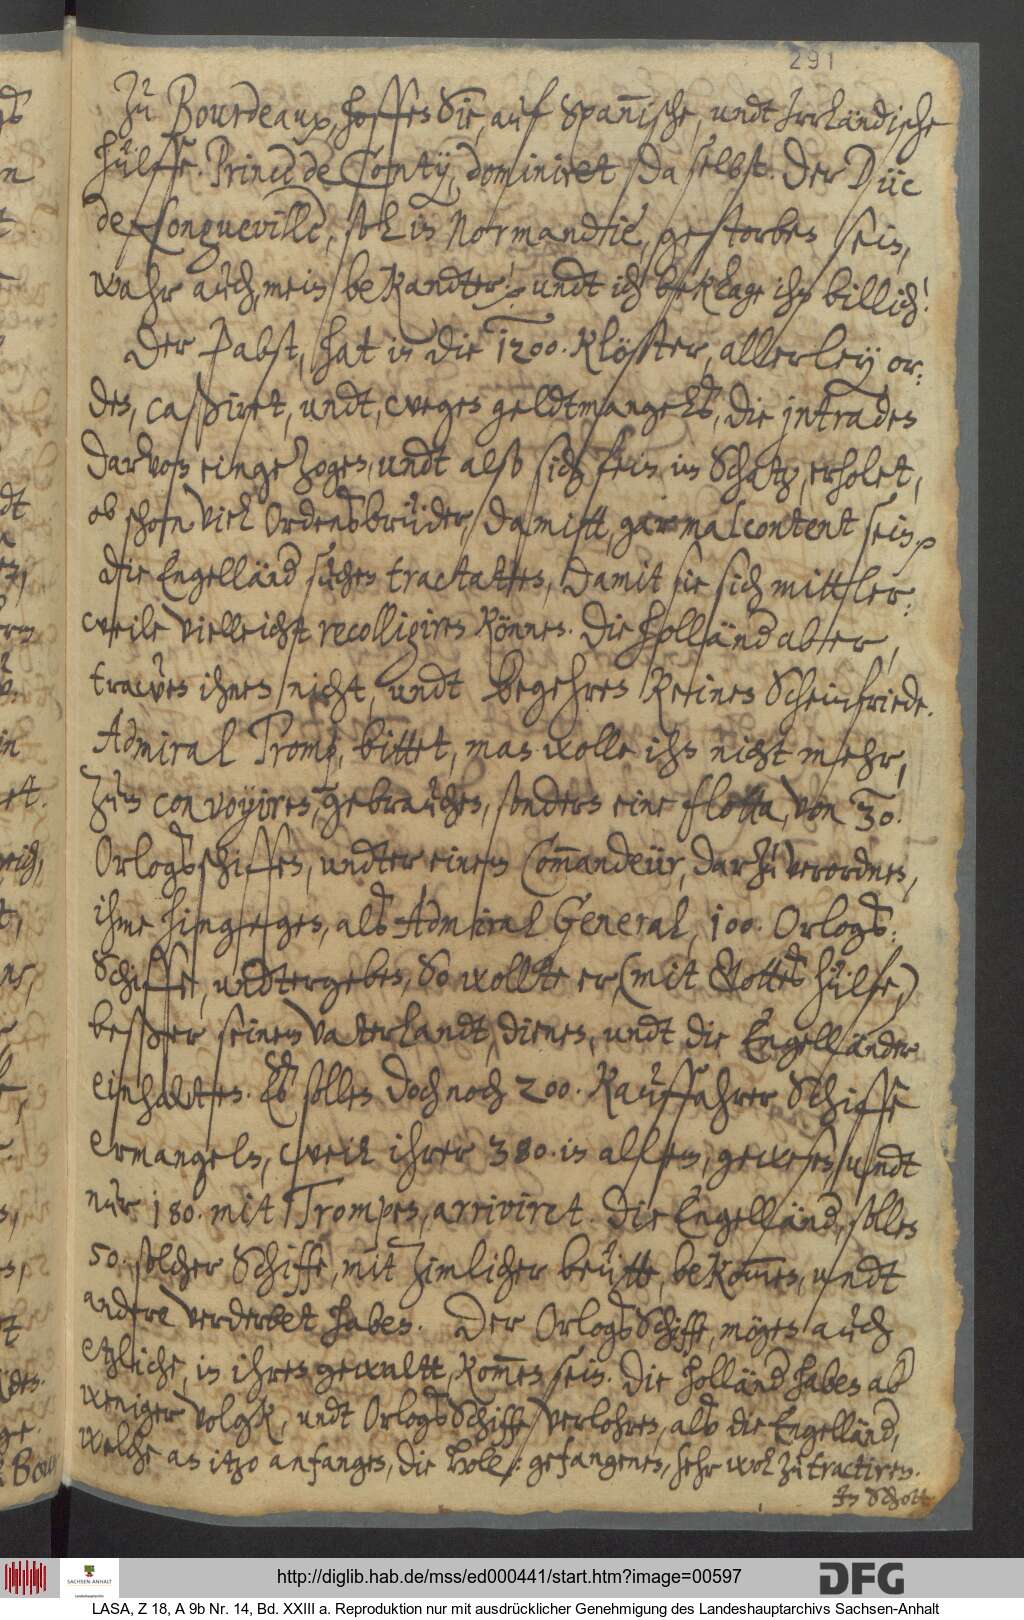 291
Zu Bourdeaux, hoffen Sie, auf Spanische, undt Irrländische
hülffe. Prince de Conty, dominiret daselbst. Der Düc
de Longueville, soll in Normandie, gestorben sein,
wahr auch, mein bekandter: undt ich beklage ihn billich!
Der Pabst, hat in die 1200. Klöster, allerley or:
den, cassiret, undt, wegen geldtmangels, die intraden
darvon eingezogen, undt also sich fein im Schatz, erholet,
ob schon viel Ordensbrüder, damitt, gar malcontent sein.
Die Engelländ suchen tractaten, damit sie sich mittler:
weile vielleicht recolligiren können. Die Holländ aber,
trawen ihnen nicht, undt begehren keinen Scheinfriede.
Admiral Tromp, bittet, man wolle ihn nicht mehr,
zum convoyiren, gebrauchen, sondern eine flotta, von 30.
Orlogsschiffen, undter einem Commandeür, darzu verordnen,
ihme hingegen, als Admiral General, 100. Orlogs:
Schiffe, undtergeben, So wollte er, (mit Gottes hülfe,)
besser seinem Vaterlandt, dienen, undt die Engelländer
einhalten. Es sollen doch noch 200. Kauffahrer Schiffe
ermangeln, weil ihrer 380. in allem, gewesen, undt
nur 180. mit Trompen, arriviret. Die Engelländ, sollen
50. solcher Schiffe, mit zimlicher beütt, bekommen, undt
andere verderbet haben. Der OrlogsSchiff, mögen auch
etzliche, in ihren gewaltt, kommen sein. Die Holländ haben ab
weniger volgk, undt OrlogsSchiffe verlohren, als die Engelländ,
welche an itzo anfangen, die Holl: gefangenen, sehr wol zu tractiren.
In Schott
http://diglib.hab.de/mss/ed000441/start.htm?image=00597
SACHSEN-ANHALT
DFG
LASA, Z 18, A 9b Nr. 14, Bd. XXIII a. Reproduktion nur mit ausdrücklicher Genehmigung des Landeshauptarchivs Sachsen-Anhalt